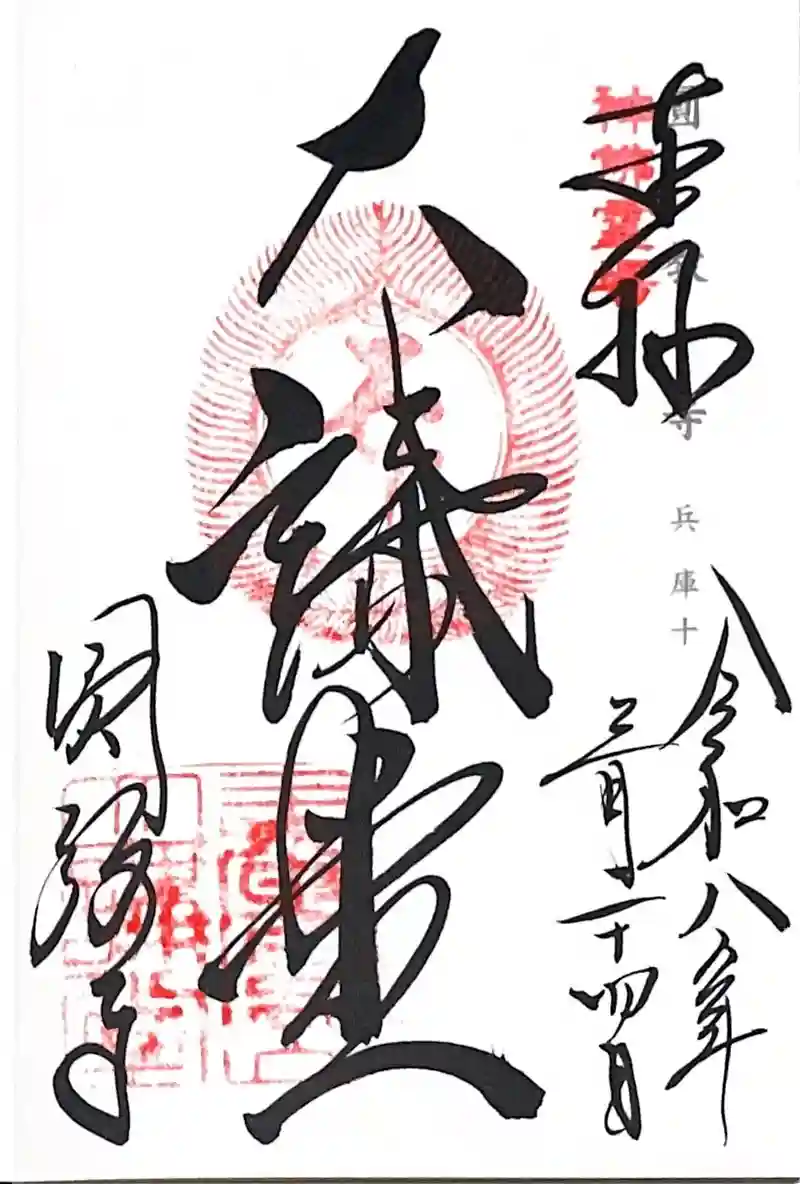 圓教寺 兵庫十
神佛霊場
奉拝
令和八年
三月二十四日
大講堂
圓教寺